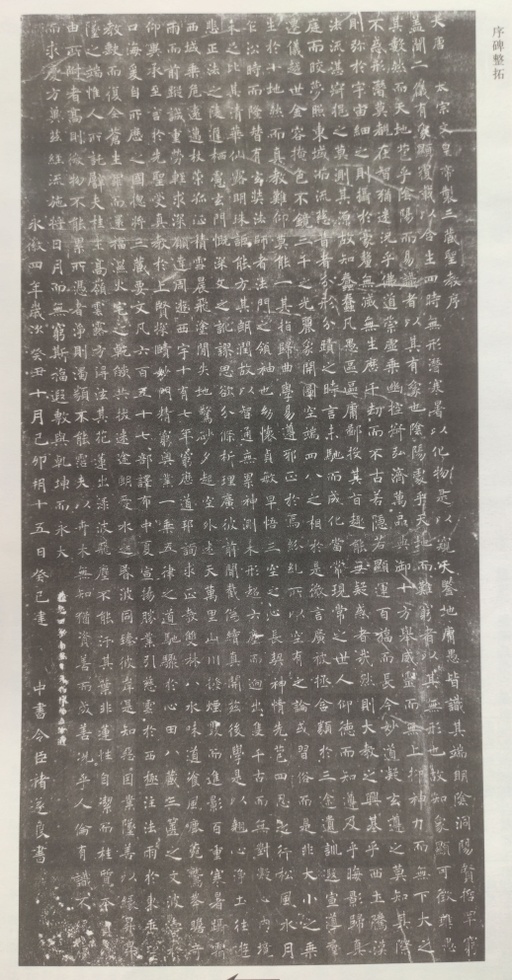 序碑整拓
大唐太宗文皇帝製三藏聖教序
蓋聞二儀有像顯覆載以含生四時無形潛寒暑以化物是以窺天鑒地庸愚皆識其端明陰洞陽賢哲罕窮
其數然而天地苞乎陰陽而易識者以其有像也陰陽處乎天地而難窮者以其無形也故知像顯可徵雖愚
不惑形潛莫覩在智猶迷況乎佛道崇虛乘幽控寂弘濟萬品典御十方舉威靈而無上抑神力而無下大之
則彌於宇宙細之則攝於豪釐無滅無生歷千劫而不古若隱若顯運百福而長今妙道凝玄遵之莫知其際
法流湛寂挹之莫測其源故知蠢蠢凡愚區區庸鄙投其旨趣能無疑惑者哉然則大教之興基乎西土騰漢
庭而皎夢照東域而流慈昔者分形分跡之時言未馳而成化當常現常之世人仰德而知遵及乎晦影歸真
遷儀越世金容掩色不鏡三千之光麗象開圖空端四八之相於是微言廣被拯含類於三途遺訓遐宣導羣
生於十地然而真教難仰莫能一其指歸曲學易遵邪正於焉紛糺所以空有之論或習俗而是非大小之乘
乍沿時而隆替有玄奘法師者法門之領袖也幼懷貞敏早悟三空之心長契神情先苞四忍之行松風水月
未足比其清華仙露明珠詎能方其朗潤故以智通無累神測未形超六塵而迥出隻千古而無對凝心內境
悲正法之陵遲栖慮玄門慨深文之訛謬思欲分條析理廣彼前聞截偽續真開茲後學是以翹心淨土往遊
西域乘危遠邁杖策孤征積雪晨飛塗間失地驚砂夕起空外迷天萬里山川撥煙霞而進影百重寒暑躡霜
雨而前蹤誠重勞輕求深願達周遊西宇十有七年窮歷道邦詢求正教雙林八水味道飡風鹿菀鷲峯瞻奇
仰異承至言於先聖受真教於上賢探賾妙門精窮奧業一乘五律之道馳驟於心田八藏三篋之文波濤於
口海爰自所歷之國揔將三藏要文凡六百五十七部譯布中夏宣揚勝業引慈雲於西極注法雨於東垂聖
教缺而復全蒼生罪而還福濕火宅之乾焰共拔迷途朗愛水之昏波同臻彼岸是知惡因業墜善以緣昇昇
墜之端惟人所託譬夫桂生高嶺雲露方得泫其花蓮出淥波飛塵不能汙其葉非蓮性自潔而桂質本貞良
由所附者高則微物不能累所憑者淨則濁類不能霑夫以卉木無知猶資善而成善況乎人倫有識不緣慶
而求慶方冀茲經流施將日月而無窮斯福遐敷與乾坤而永大
永徽四年歲次癸丑十月己卯朔十五日癸巳建 中書令臣褚遂良書